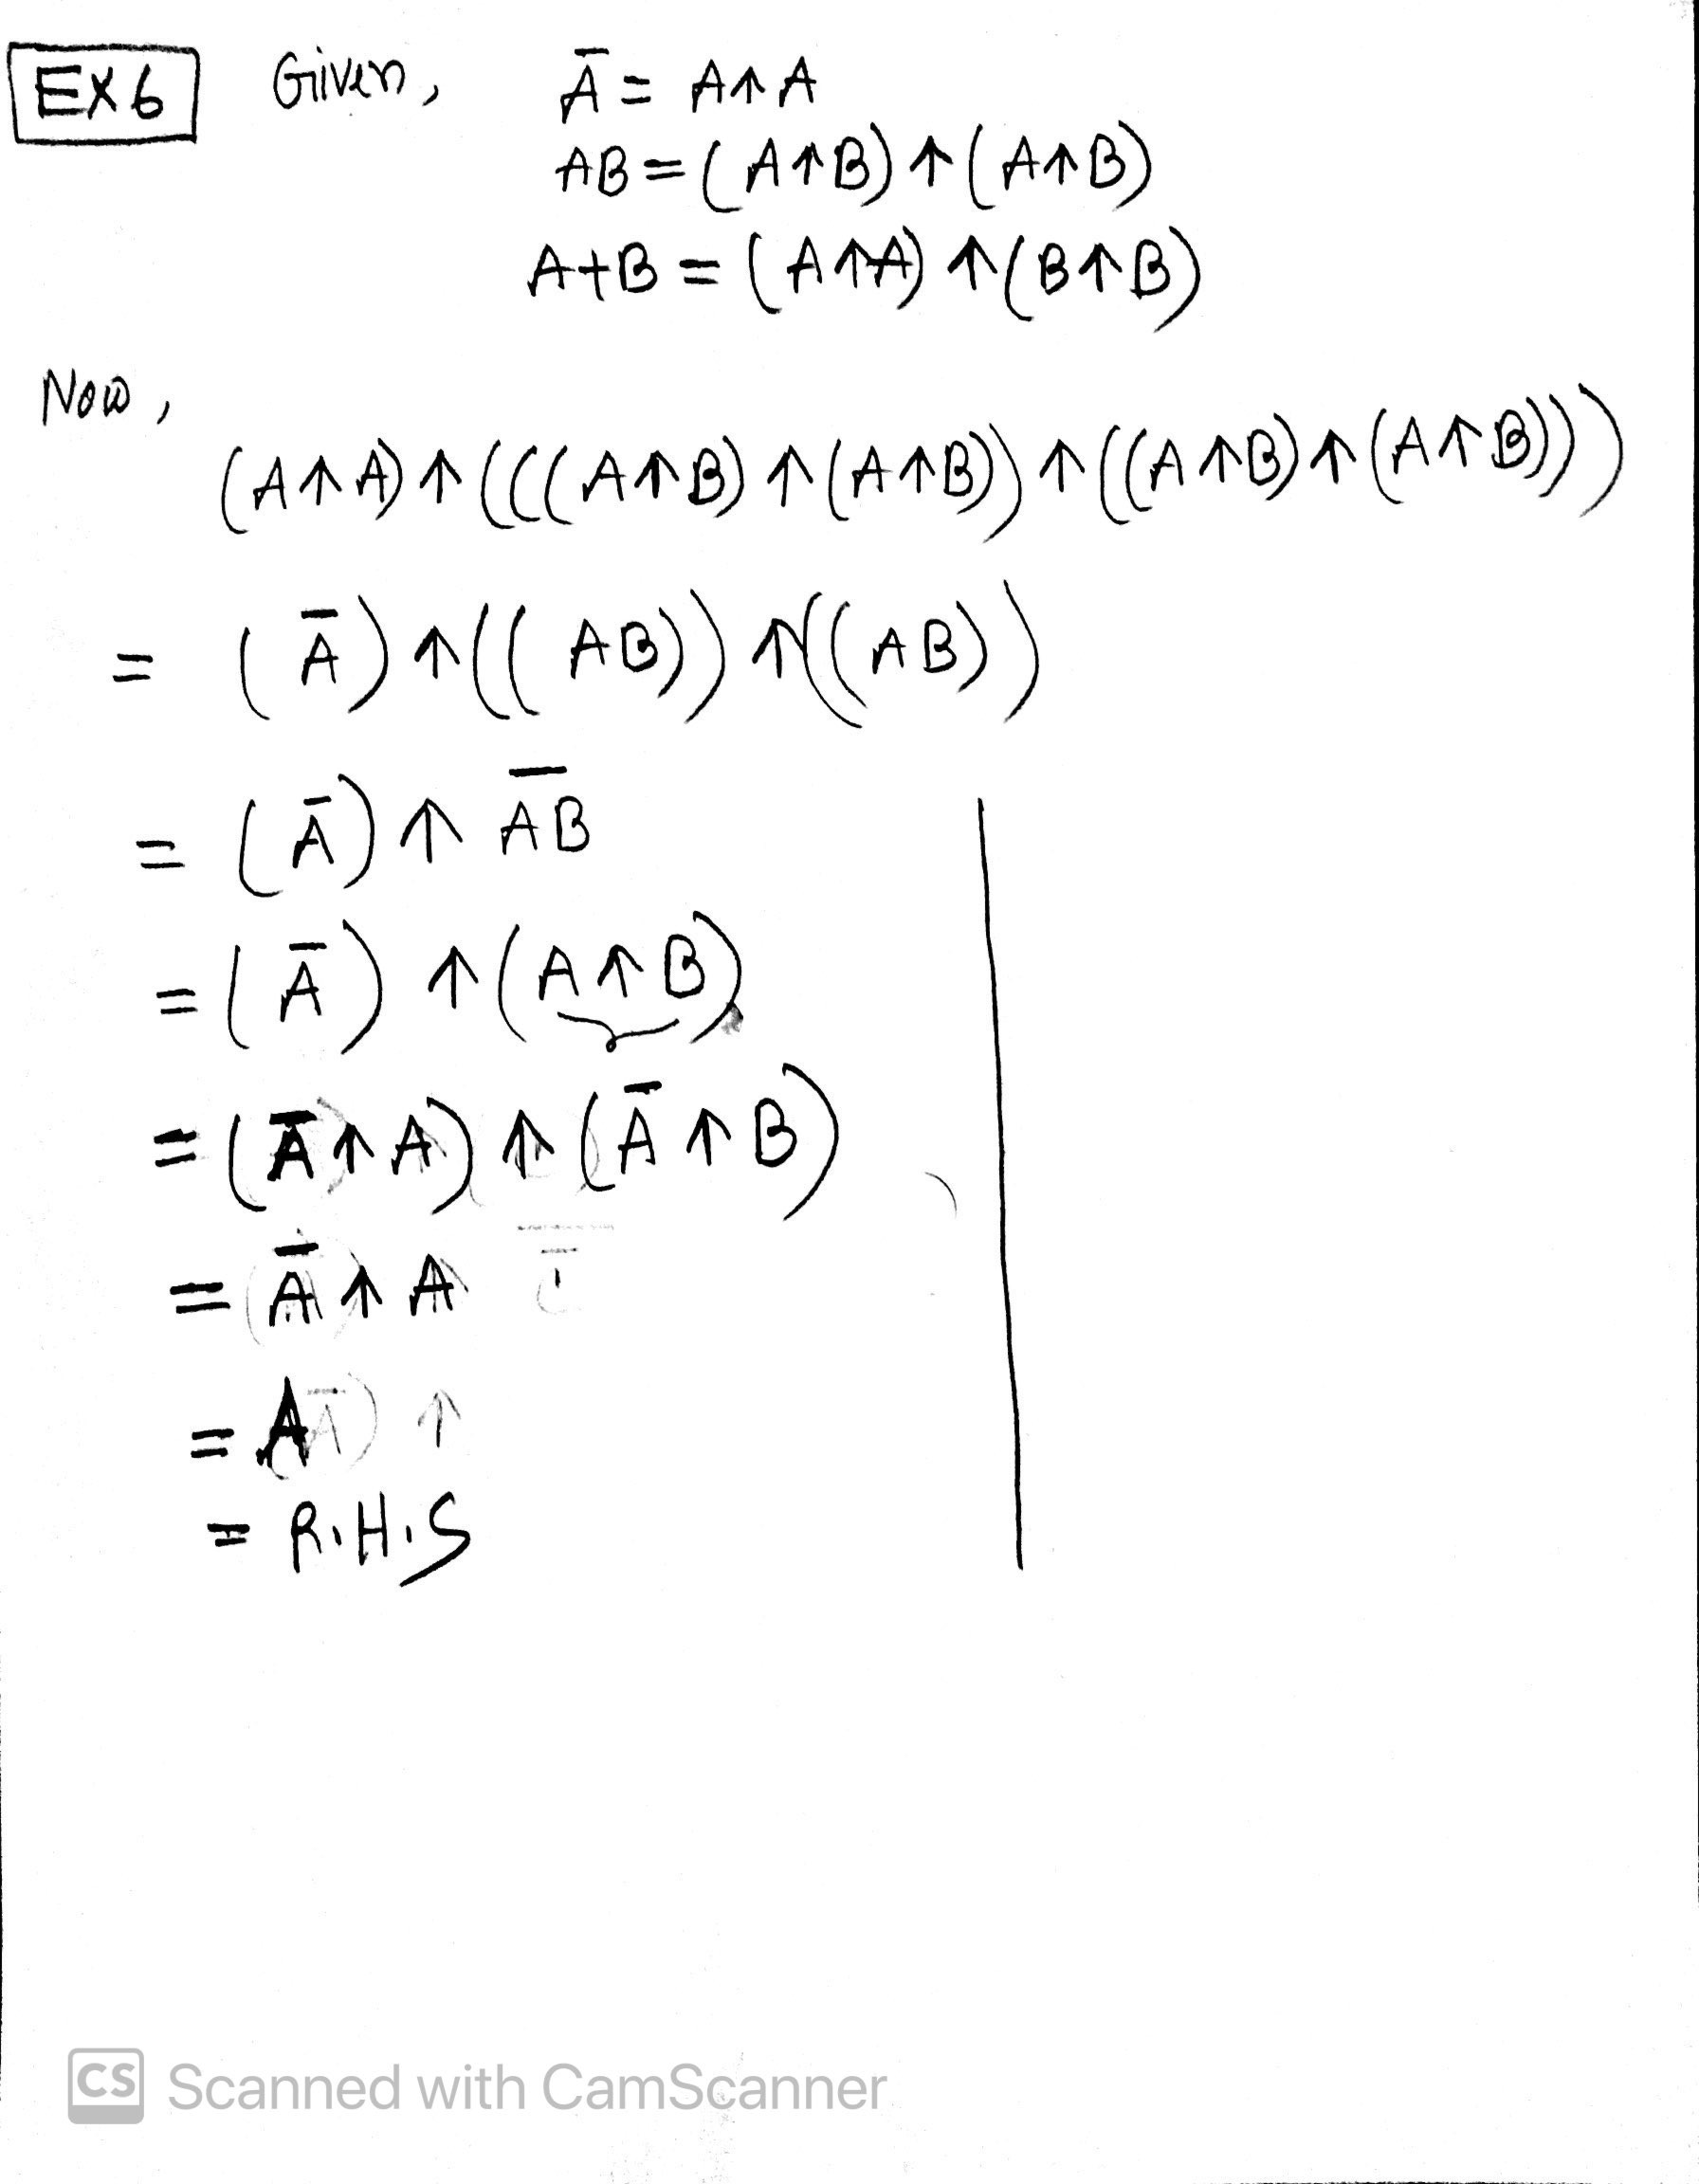 EX6 Given, Ā = A↑A
AB = (A↑B)↑(A↑B)
A+B = (A↑A)↑(B↑B)
Now,
(A↑A)↑(((A↑B)↑(A↑B))↑((A↑B)↑(A↑B)))
= (Ā)↑((AB))↑((AB))
= (Ā)↑ A̅B̅
= (Ā)↑(A↑B)
= (Ā↑A)↑(Ā↑B)
= Ā↑A
= A
= R.H.S
CS Scanned with CamScanner